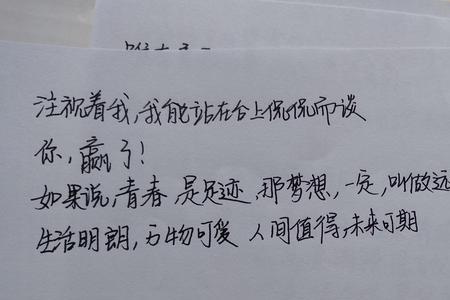 注视着我,我能站在台上侃侃而谈
你,赢了!
如果说,青春,是足迹,那梦想,一定,叫做远
生活明朗,万物可爱 人间值得,未来可期